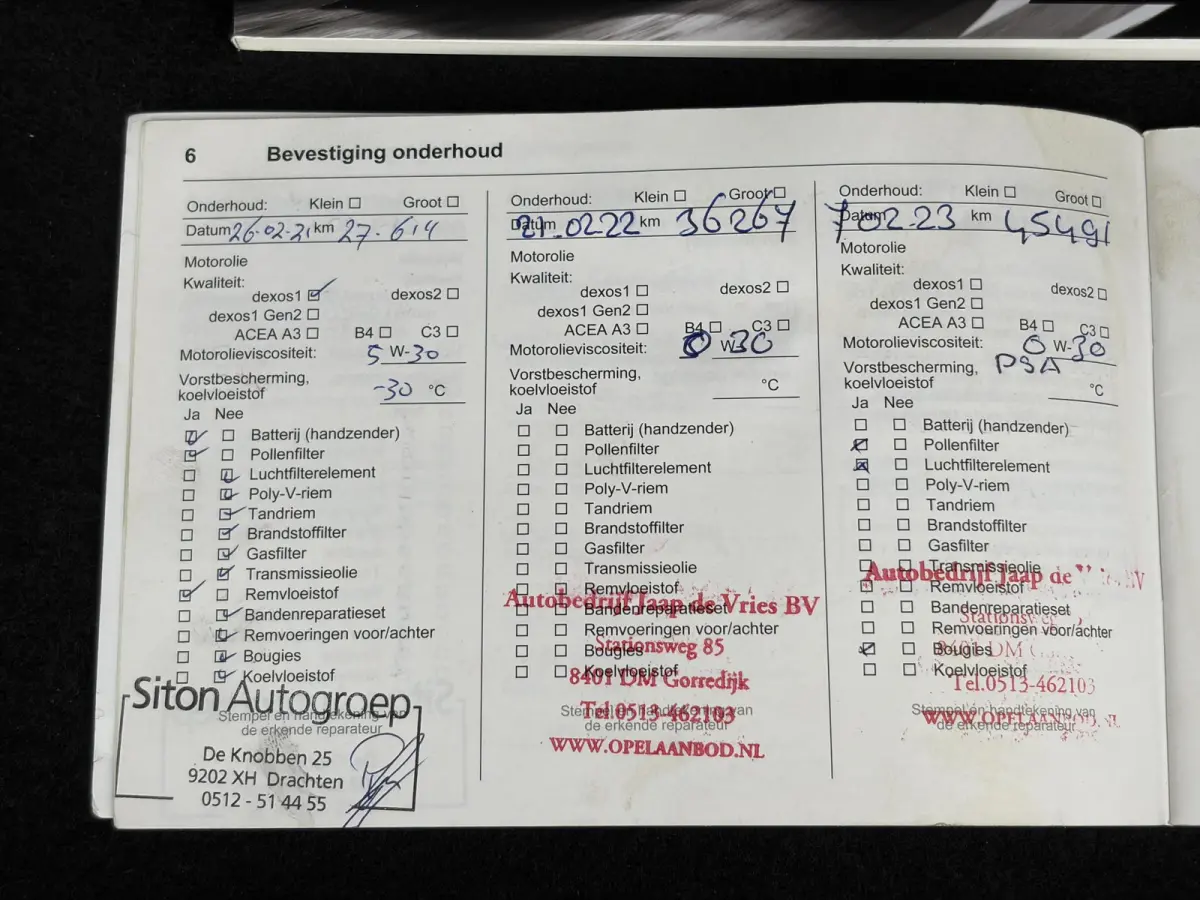 6 Bevestiging onderhoud
Onderhoud: Klein ☐ Groot ☐
Datum 26-02-21 km 27.614
Motorolie
Kwaliteit:
dexos1 ☑ dexos2 ☐
dexos1 Gen2 ☐
ACEA A3 ☐ B4 ☐ C3 ☐
Motorolieviscositeit: 5 W-30
Vorstbescherming,
koelvloeistof -30 °C
Ja Nee
☑ ☐ Batterij (handzender)
☑ ☐ Pollenfilter
☐ ☑ Luchtfilterelement
☐ ☑ Poly-V-riem
☐ ☑ Tandriem
☐ ☑ Brandstoffilter
☐ ☑ Gasfilter
☐ ☑ Transmissieolie
☑ ☐ Remvloeistof
☐ ☑ Bandenreparatieset
☐ ☑ Remvoeringen voor/achter
☐ ☑ Bougies
☐ ☑ Koelvloeistof
Siton Autogroep
Stempel en handtekening van
de erkende reparateur
De Knobben 25
9202 XH Drachten
0512 - 51 44 55
Onderhoud: Klein ☐ Groot ☐
Datum 21.02.22 km 36267
Motorolie
Kwaliteit:
dexos1 ☐ dexos2 ☐
dexos1 Gen2 ☐
ACEA A3 ☐ B4 ☐ C3 ☐
Motorolieviscositeit: 0 W-30
Vorstbescherming,
koelvloeistof °C
Ja Nee
☐ ☐ Batterij (handzender)
☐ ☐ Pollenfilter
☐ ☐ Luchtfilterelement
☐ ☐ Poly-V-riem
☐ ☐ Tandriem
☐ ☐ Brandstoffilter
☐ ☐ Gasfilter
☐ ☐ Transmissieolie
☐ ☐ Remvloeistof
Autobedrijf Jaap de Vries BV
☐ ☐ Bandenreparatieset
☐ ☐ Remvoeringen voor/achter
Stationsweg 85
☐ ☐ Bougies
☐ ☐ Koelvloeistof
8401 DM Gorredijk
Stempel en handtekening van
Tel.0513-462103
de erkende reparateur
WWW.OPELAANBOD.NL
Onderhoud: Klein ☐ Groot ☐
Datum 7 02-23 km 45491
Motorolie
Kwaliteit:
dexos1 ☐ dexos2 ☐
dexos1 Gen2 ☐
ACEA A3 ☐ B4 ☐ C3 ☐
Motorolieviscositeit: 0 W-30
Vorstbescherming, PSA
koelvloeistof °C
Ja Nee
☐ ☐ Batterij (handzender)
☑ ☐ Pollenfilter
☑ ☐ Luchtfilterelement
☐ ☐ Poly-V-riem
☐ ☐ Tandriem
☐ ☐ Brandstoffilter
☐ ☐ Gasfilter
☐ ☐ Transmissieolie
Autobedrijf Jaap de BV
☐ ☐ Remvloeistof
☐ ☐ Bandenreparatieset
Stationsweg
☐ ☐ Remvoeringen voor/achter
☑ ☐ Bougies
8401 DM
☐ ☐ Koelvloeistof
Tel.0513-462103
Stempel en handtekening van
WWW.OPELAANBOD.NL
de erkende reparateur